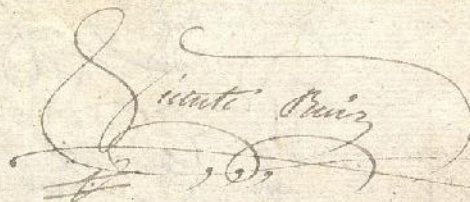 Vicente Ruiz